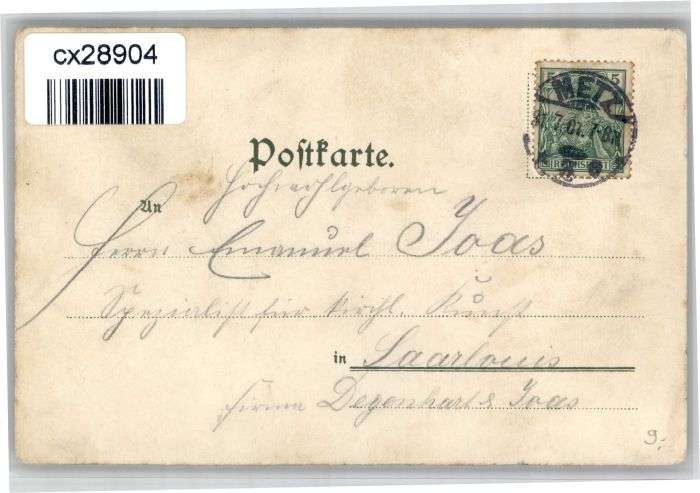 cx28904
5 5
METZ
7.01.7-8
REICHSPOST
Postkarte.
Hochwohlgeboren
An
Herrn Emanuel Joas
Spezialist für kirchl. Kunst
in Saarlouis
Firma Degenhart & Joas
9.-